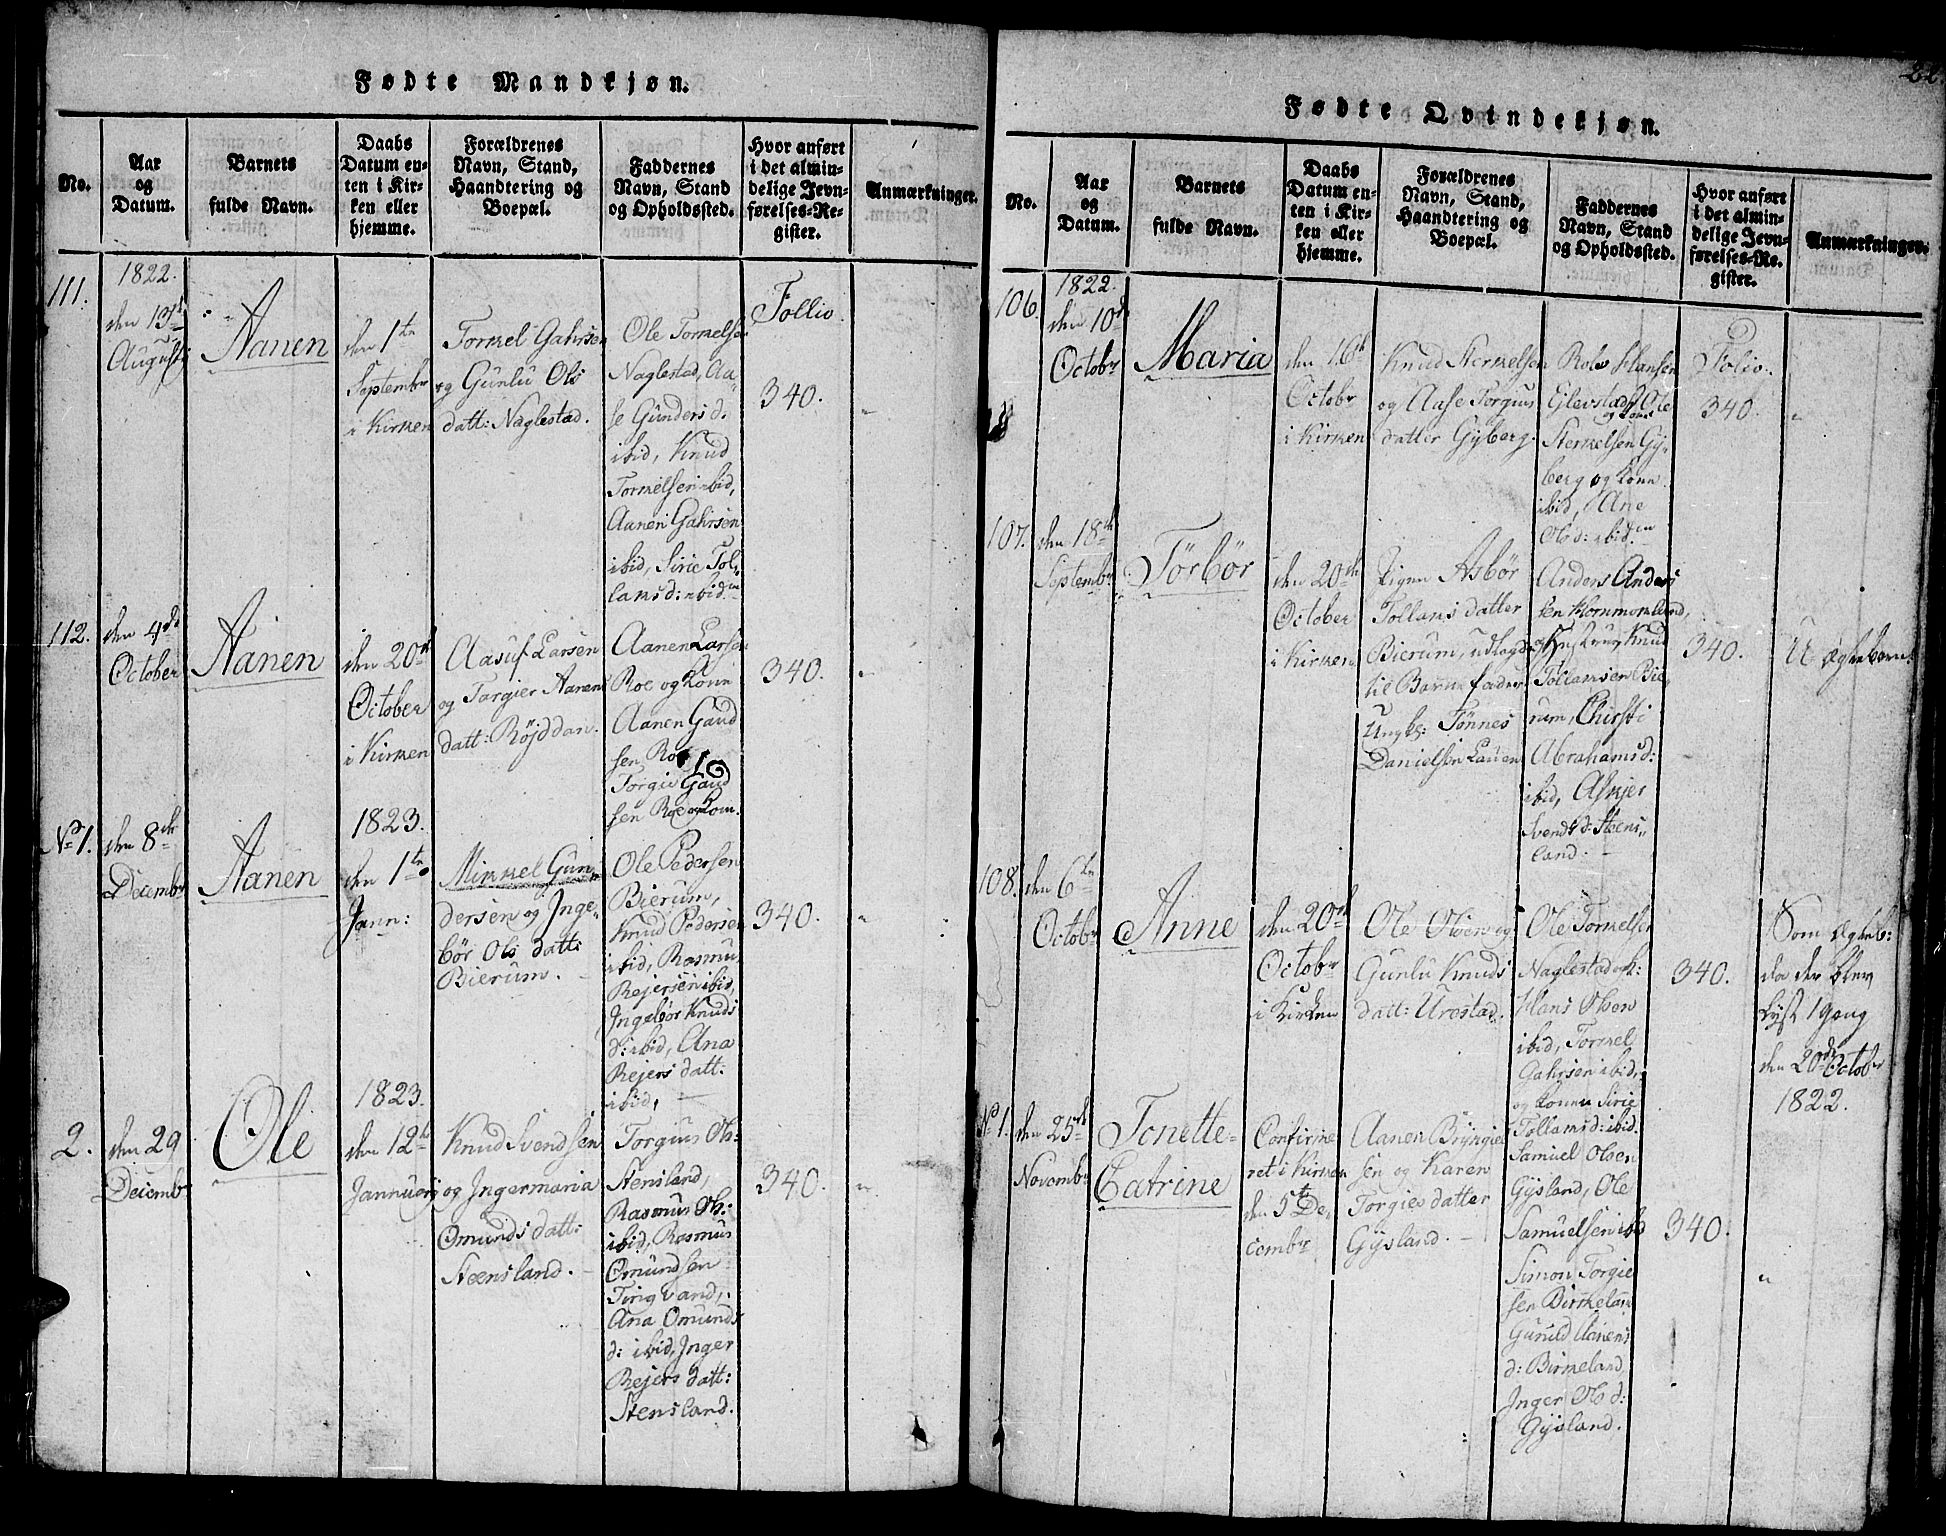 Fødte Mandkjøn.
No.
Aar
og
Datum.
Barnets
fulde Navn.
Daabs
Datum en-
ten i Kir-
ken eller
hjemme.
Forældrenes
Navn, Stand,
Haandtering og
Boepæl.
Faddernes
Navn, Stand
og Opholdssted.
Hvor anført
i det almin-
delige Jevn-
førelses-Re-
gister.
Anmærkninger.
111.
1822.
den 13de
Augusti
Aanen
den 1te
September
i Kirken
Tormel Gahrsen
og Gunlu Ols
datt: Naglestad.
Ole Tormelsen
Naglestad, Aa„
se Gunders d.
ibid, Knud
Tormelsen ibid,
Aanen Gahrsen
ibid, Sirie Tol„
lams d: ibid
Follio.
340.
"
112.
den 4de
October
Aanen
den 20de
October
i Kirken
Aasuf Larsen
og Torgier Aanens
datt: Røjddan.
Aanen Larsen
Roe og Kone
Aanen Gaud
sen Roe
Torgie Gaud
sen Roe og Kone.
340.
"
No 1.
den 8de
Decembr
Aanen
1823.
den 1te
Jann:
Mikkel Gun„
dersen og Inge„
bør Ols datt:
Bierum.
Ole Pedersen
Bierum,
Knud Pedersen
ibid, Rasmus
Rejersen ibid,
Ingebor Knuds
d: ibid, Ana
Rejers datt:
ibid,
340.
"
2.
den 29
Decembr
Ole
1823.
den 12te
Jannuarj
Knud Svendsen
og Ingermaria
Omunds datt:
Steensland.
Torgius Ols:
Stensland,
Rasmus Ols:
ibid, Rasmus
Omundsen
Tingvand,
Ana Omunds
d: ibid, Inger
Rejers datt:
Stensland.
340.
"
22
Fødte Qvindekjøn.
No.
Aar
og
Datum.
Barnets
fulde Navn.
Daabs
Datum en-
ten i Kir-
ken eller
hjemme.
Forældrenes
Navn, Stand,
Haandtering og
Boepæl.
Faddernes
Navn, Stand
og Opholdssted.
Hvor anført
i det almin-
delige Jevn-
førelses-Re-
gister.
Anmærkninger.
106.
1822.
den 10de
Octobr
Maria
den 16de
Octobr
i Kirken
Knud Sterkelsen
og Aase Torgius
datter Gyberg.
Rolv Hansen
Ejlevstad, Ole
og Kone
Sterkelsen Gy„
berg og Kone
ibid, Ane
Ols d: ibid.
Folio.
340.
"
107.
den 18de
Septembr
Tørbør
den 20de
October
i Kirken
Pigen Asbør
Tollams datter
Bierum, udlagde
til Barnefader
Ungk: Tønnes
Danielsen Lauen
Anders Anders
sen Kornmomland,
og Hustrue, Knud
Tollamsen Bie„
rum, Chirsti
Abrahams d:
ibid, Askjer
Svends d: Steens„
land.
340.
Uægtebarn.
108.
den 6te
Octobr
Anne
den 20de
Octobr
i Kirken
Ole Olsen og
Gunlu Knuds
datt: Urestad.
Ole Tormelsen
Naglestad
Hans Olsen
ibid, Tormel
Gahrsen ibid,
og Kone Sirie
Tollams d: ibid.
340.
Som Ægteb:
da der blev
lyst 1 Gang
den 20de Octobr
1822.
No 1.
den 25de
Novembr
Tonette-
Catrine
Confirme
ret i Kirken
den 5te De„
cembr
Aanen Bryngie
sen og Karen
Torgies datter
Gysland.
Samuel Olsen
Gysland, Ole
Samuelsen ibid
Simon Torgie
sen Birkeland
Gunild Aanens
d: Birkeland,
Inger Ols d:
Gysland.
340.
"